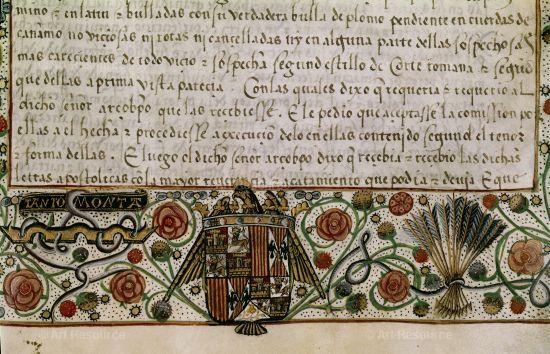 mino ⁊ en latin ⁊ bulladas con su verdadera bulla de plomo pendiente en cuerdas de
cañamo no viciosas ni rotas ni cancelladas ny en alguna parte dellas sospechosas
mas carecientes de todo vicio ⁊ sospecha segund estillo de Corte romana ⁊ segūd
que dellas a prima vista parecia. Con las quales dixo q̄ requeria ⁊ requerio al
dicho señor arçobpo que las recebiesse. E le pedio que aceptasse la comission por
ellas a el hecha ⁊ procediesse a execucio delo en ellas contenido segund el tenor
⁊ forma dellas. E luego el dicho señor arçobpo dixo q̄ recebia ⁊ recebio las dichas
letras apostolicas cō la mayor reuerencia ⁊ acatamiento que podia ⁊ deuia E que
TANTO MONTA
© Art Resource
© Art Resource